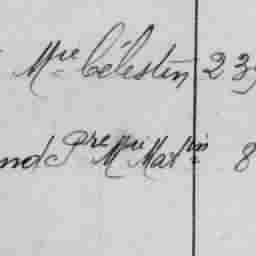 Mre Célestin 23
nd Pre Mie Martin 8